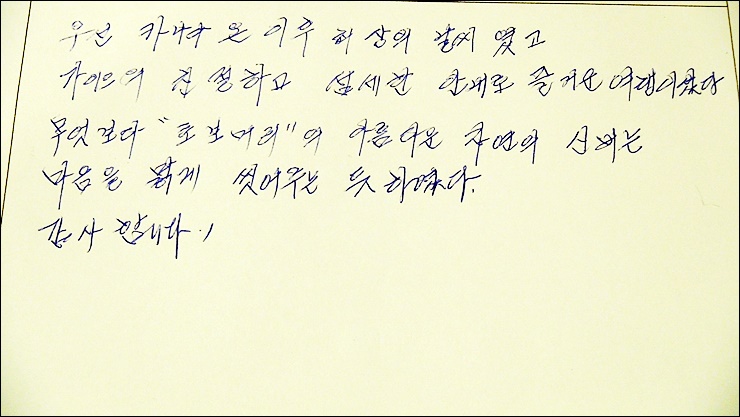 우선 카나다 온 이후 최상의 날씨 였고
가이드의 친절하고 섬세한 안내로 즐거운 여행이었다
무엇보다 "토보머리"의 아름다운 자연의 신비는
마음을 맑게 씻어주는 듯 하였다.
감사 합니다!